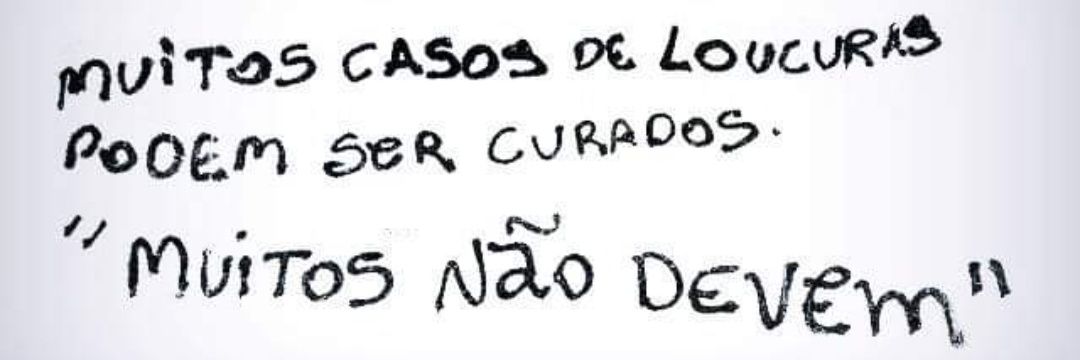 MUiTOS CASOS DE LOUCURAS
PODEM SER CURADOS.
"MUiTOS Não DEVEm"